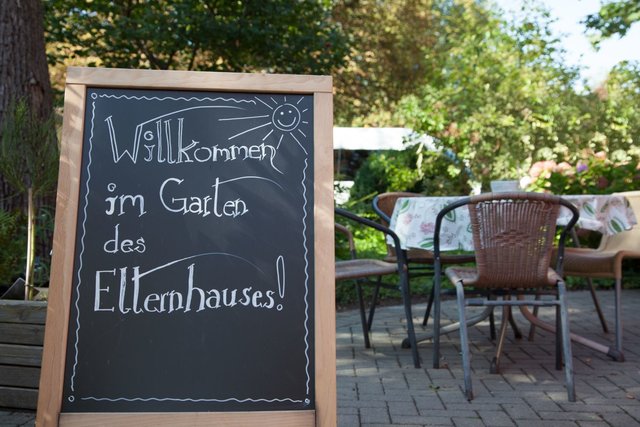 Willkommen
im Garten
des
Elternhauses!